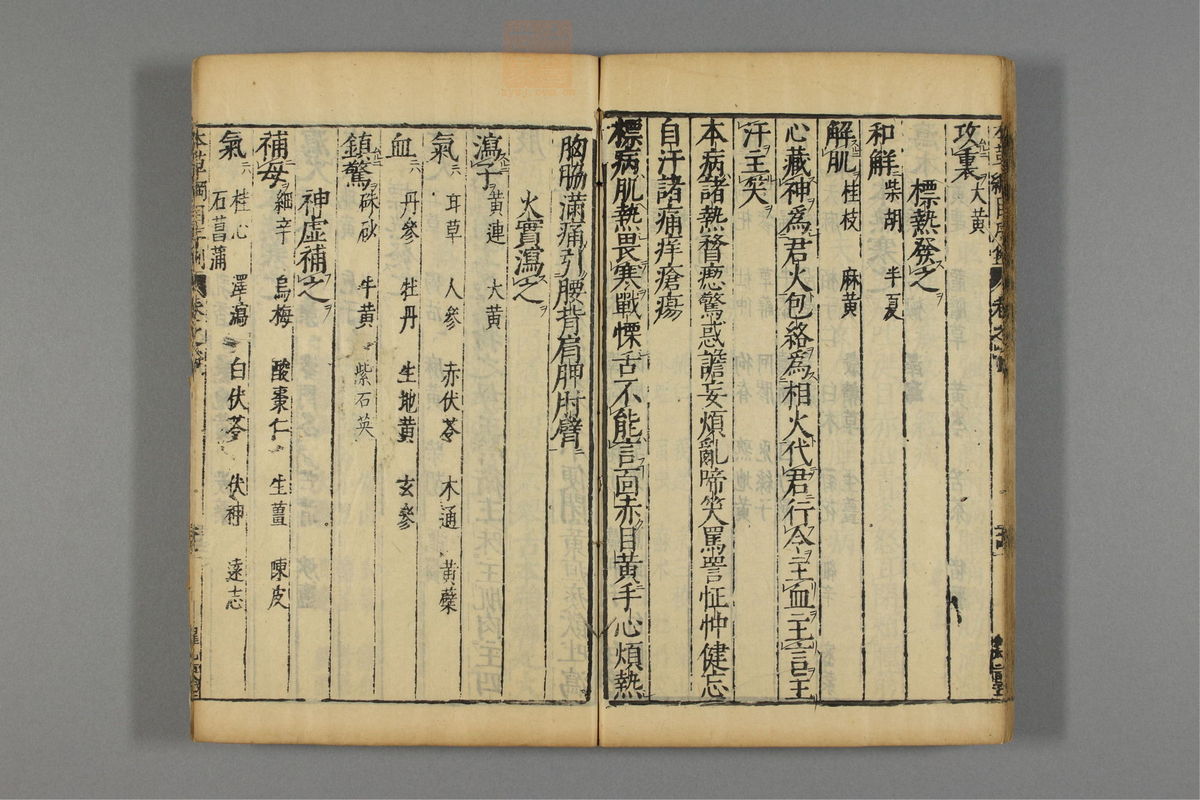 攻裏 大黃
標熱發之
和解 柴胡 半夏
解肌 桂枝 麻黃
心藏神爲君火包絡爲相火代君行令主血主言主
汗主笑
本病諸熱瞀瘛驚惑譫妄煩亂啼笑罵詈怔忡健忘
自汗諸痛痒瘡瘍
標病肌熱畏寒戰慄舌不能言面赤目黃手心煩熱
胸脇滿痛引腰背肩胛肘臂
火實瀉之
瀉子 黃連 大黃
氣 耳草 人參 赤伏苓 木通 黃蘗
血 丹參 牡丹 生地黃 玄參
鎮驚 硃砂 牛黃 紫石英
神虛補之
補母 細辛 烏梅 酸棗仁 生薑 陳皮
氣 桂心 澤瀉 白伏苓 伏神 遠志
石菖蒲